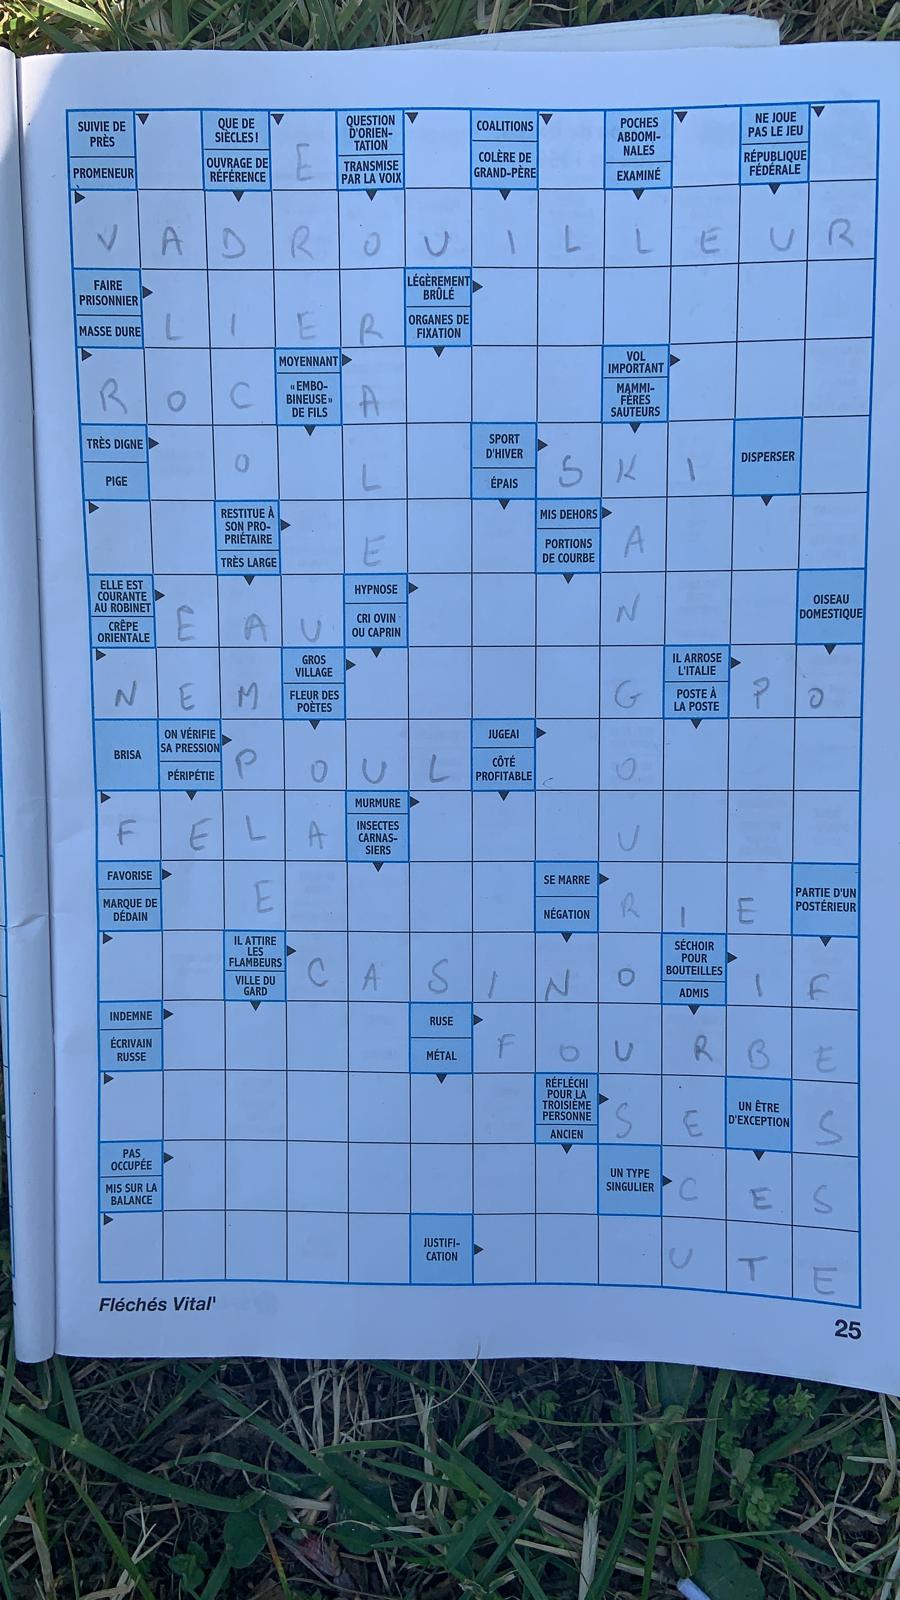 SUIVIE DE PRÈS
PROMENEUR
QUE DE SIÈCLES !
OUVRAGE DE RÉFÉRENCE
E
QUESTION D'ORIEN-TATION
TRANSMISE PAR LA VOIX
COALITIONS
COLÈRE DE GRAND-PÈRE
POCHES ABDOMI-NALES
EXAMINÉ
NE JOUE PAS LE JEU
RÉPUBLIQUE FÉDÉRALE
V A D R O U I L L E U R
FAIRE PRISONNIER
MASSE DURE
L I E R
LÉGÈREMENT BRÛLÉ
ORGANES DE FIXATION
R O C
MOYENNANT
« EMBO-BINEUSE » DE FILS
A
VOL IMPORTANT
MAMMI-FÈRES SAUTEURS
TRÈS DIGNE
PIGE
O L
SPORT D'HIVER
ÉPAIS
S K I
DISPERSER
RESTITUE À SON PRO-PRIÉTAIRE
TRÈS LARGE
E
MIS DEHORS
PORTIONS DE COURBE
A
ELLE EST COURANTE AU ROBINET
CRÊPE ORIENTALE
E A U
HYPNOSE
CRI OVIN OU CAPRIN
N
OISEAU DOMESTIQUE
N E M
GROS VILLAGE
FLEUR DES POÈTES
G
IL ARROSE L'ITALIE
POSTE À LA POSTE
P O
BRISA
ON VÉRIFIE SA PRESSION
PÉRIPÉTIE
P O U L
JUGEAI
CÔTÉ PROFITABLE
O
F E L A
MURMURE
INSECTES CARNAS-SIERS
U
FAVORISE
MARQUE DE DÉDAIN
E
SE MARRE
NÉGATION
R I E
PARTIE D'UN POSTÉRIEUR
IL ATTIRE LES FLAMBEURS
VILLE DU GARD
C A S I N O
SÉCHOIR POUR BOUTEILLES
ADMIS
I F
INDEMNE
ÉCRIVAIN RUSSE
RUSE
MÉTAL
F O U R B E
RÉFLÉCHI POUR LA TROISIÈME PERSONNE
ANCIEN
S E
UN ÊTRE D'EXCEPTION
S
PAS OCCUPÉE
MIS SUR LA BALANCE
UN TYPE SINGULIER
C E S
JUSTIFI-CATION
U T E
Fléchés Vital'
25